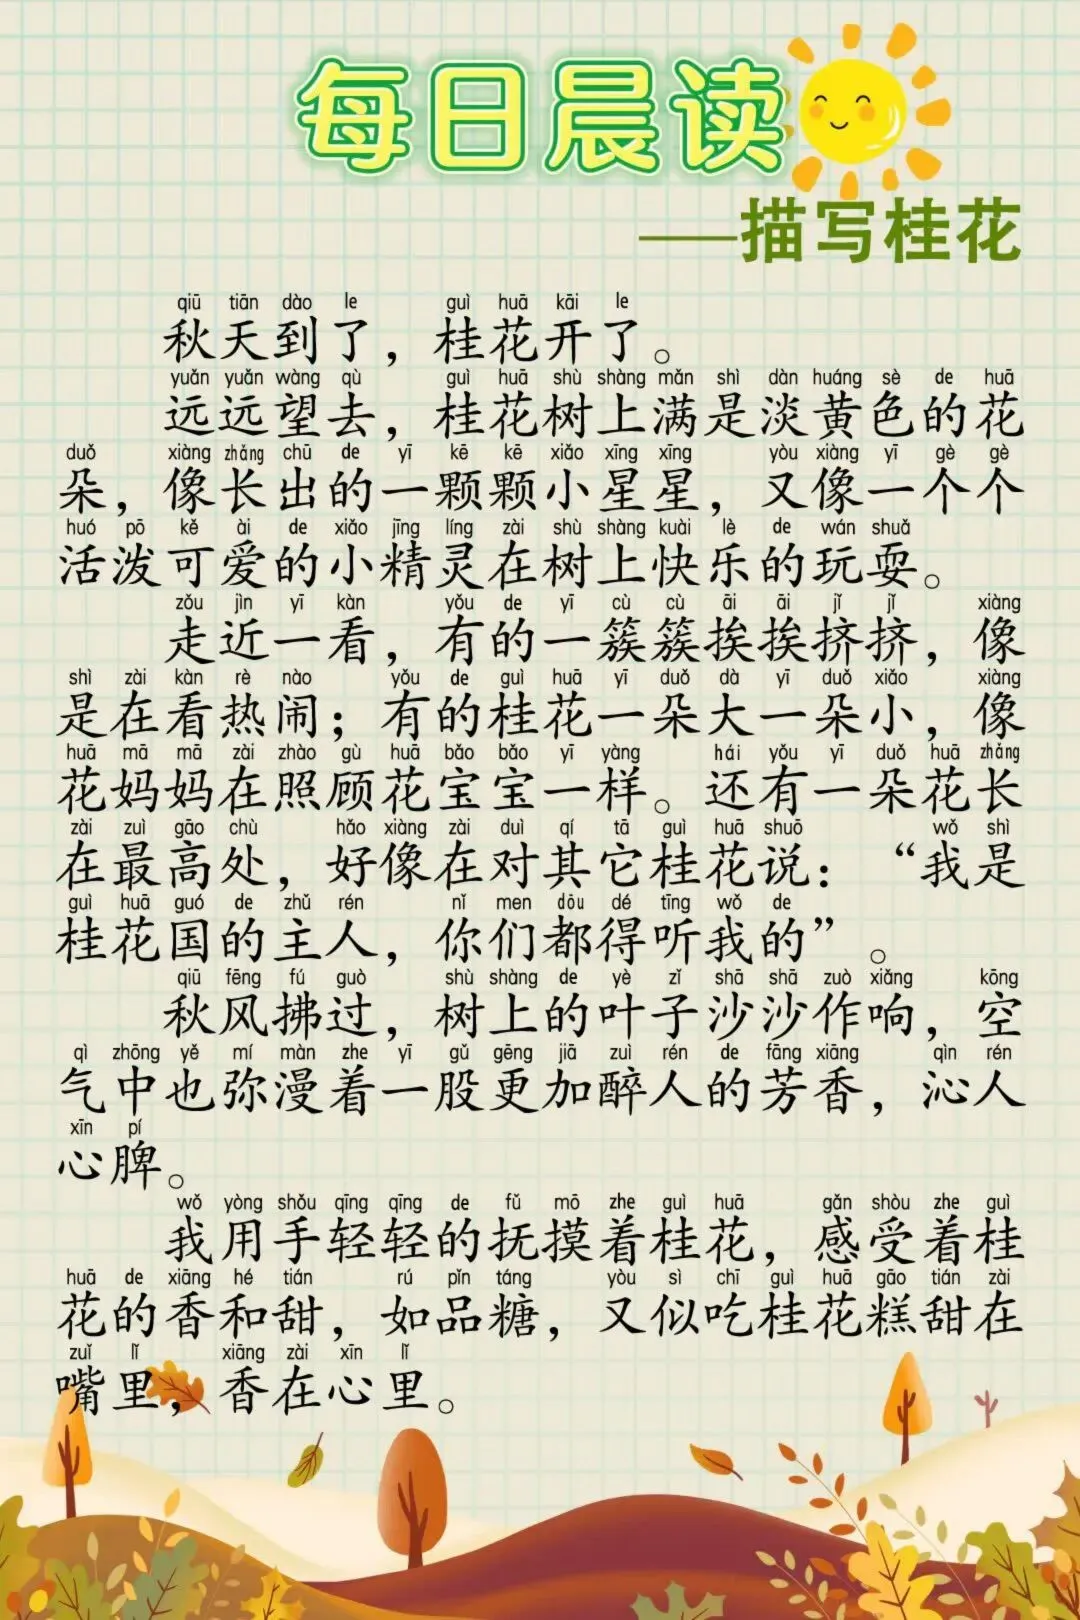 每日晨读
——描写桂花
qiū tiān dào le guì huā kāi le
秋天到了，桂花开了。
yuǎn yuǎn wàng qù guì huā shù shàng mǎn shì dàn huáng sè de huā
远远望去，桂花树上满是淡黄色的花
duǒ xiàng zhǎng chū de yī kē kē xiǎo xīng xīng yòu xiàng yī gè gè
朵，像长出的一颗颗小星星，又像一个个
huó pō kě ài de xiǎo jīng líng zài shù shàng kuài lè de wán shuǎ
活泼可爱的小精灵在树上快乐的玩耍。
zǒu jìn yī kàn yǒu de yī cù cù āi āi jǐ jǐ xiàng
走近一看，有的一簇簇挨挨挤挤，像
shì zài kàn rè nào yǒu de guì huā yī duǒ dà yī duǒ xiǎo xiàng
是在看热闹；有的桂花一朵大一朵小，像
huā mā mā zài zhào gù huā bǎo bǎo yī yàng hái yǒu yī duǒ huā zhǎng
花妈妈在照顾花宝宝一样。还有一朵花长
zài zuì gāo chù hǎo xiàng zài duì qí tā guì huā shuō wǒ shì
在最高处，好像在对其它桂花说：“我是
guì huā guó de zhǔ rén nǐ men dōu dé tīng wǒ de
桂花国的主人，你们都得听我的”。
qiū fēng fú guò shù shàng de yè zǐ shā shā zuò xiǎng kōng
秋风拂过，树上的叶子沙沙作响，空
qì zhōng yě mí màn zhe yī gǔ gēng jiā zuì rén de fāng xiāng qìn rén
气中也弥漫着一股更加醉人的芳香，沁人
xīn pí
心脾。
wǒ yòng shǒu qīng qīng de fǔ mō zhe guì huā gǎn shòu zhe guì
我用手轻轻的抚摸着桂花，感受着桂
huā de xiāng hé tián rú pǐn táng yòu sì chī guì huā gāo tián zài
花的香和甜，如品糖，又似吃桂花糕甜在
zuǐ lǐ xiāng zài xīn lǐ
嘴里，香在心里。